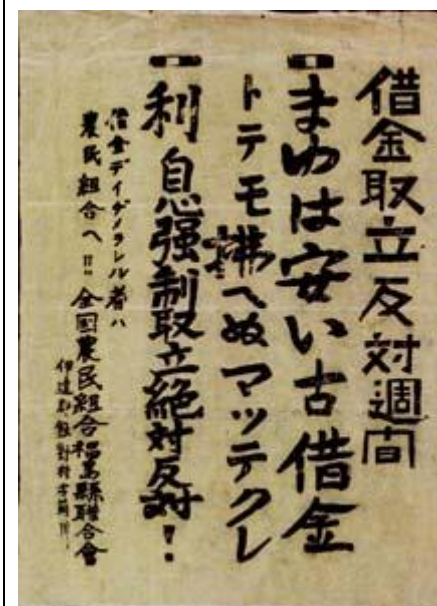 借金取立反対週間
一、まゆは安い古借金
トテモ拂へぬマッテクレ
一、利息强制取立絶対反対!
借金デイヂメラレル者ハ
農民組合へ!! 全國農民組合福島縣聯合會
伊達郡